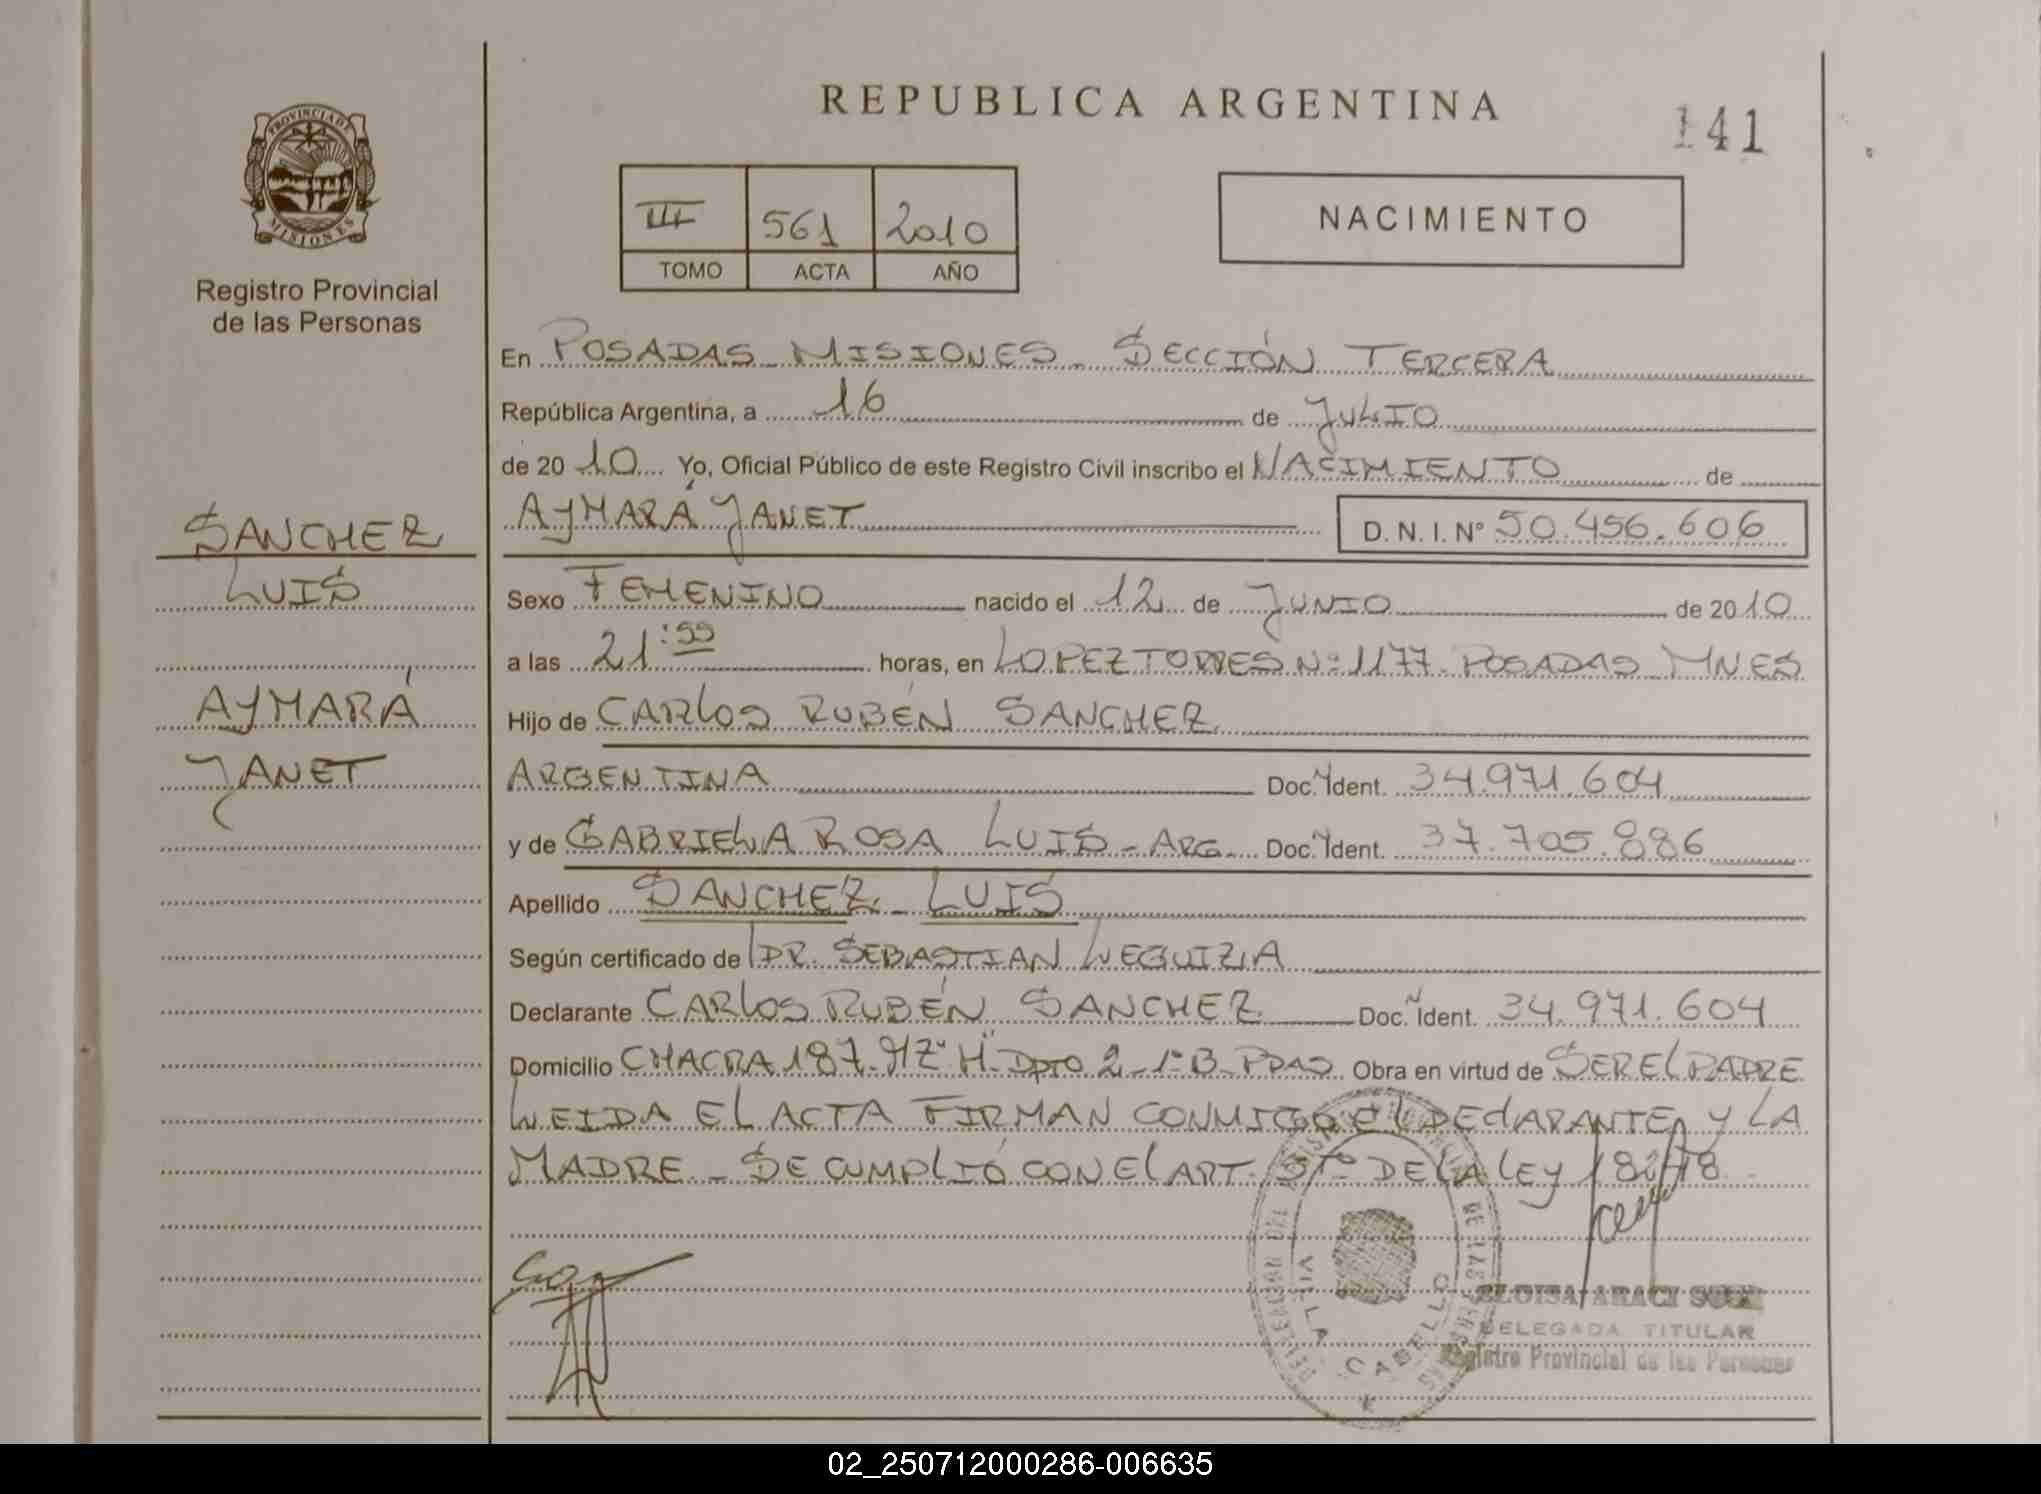 PROVINCIA DE
MISIONES
Registro Provincial
de las Personas
SANCHEZ
LUIS
AYMARÁ
YANET
REPUBLICA ARGENTINA
141
III 561 2010
TOMO ACTA AÑO
NACIMIENTO
En POSADAS MISIONES - SECCIÓN TERCERA
República Argentina, a 16 de JULIO
de 20 10 Yo, Oficial Público de este Registro Civil inscribo el NACIMIENTO de
AYMARÁ YANET D. N. I. Nº 50.456.606
Sexo FEMENINO nacido el 12 de JUNIO de 20 10
a las 21:55 horas, en LOPEZ TORRES Nº 1177 - POSADAS MNES
Hijo de CARLOS RUBÉN SANCHEZ
ARGENTINA Doc. Ident. 34.971.604
y de GABRIELA ROSA LUIS - ARG. Doc. Ident. 37.705.886
Apellido SANCHEZ - LUIS
Según certificado de DR. SEBASTIAN LEGUIZA
Declarante CARLOS RUBÉN SANCHEZ Doc. Ident. 34.971.604
Domicilio CHACRA 187 - MZ "H" Dpto 2 - 1º B - PDAS Obra en virtud de SER EL PADRE
LEIDA EL ACTA FIRMAN CONMIGO EL DECLARANTE Y LA
MADRE - SE CUMPLIÓ CON EL ART. DE LA LEY 18248
DELEGACION DEL REGISTRO PROVINCIAL DE LAS PERSONAS
VILLA CABELLO
ELOISA ARACI
DELEGADA TITULAR
Registro Provincial de las Personas
02_250712000286-006635